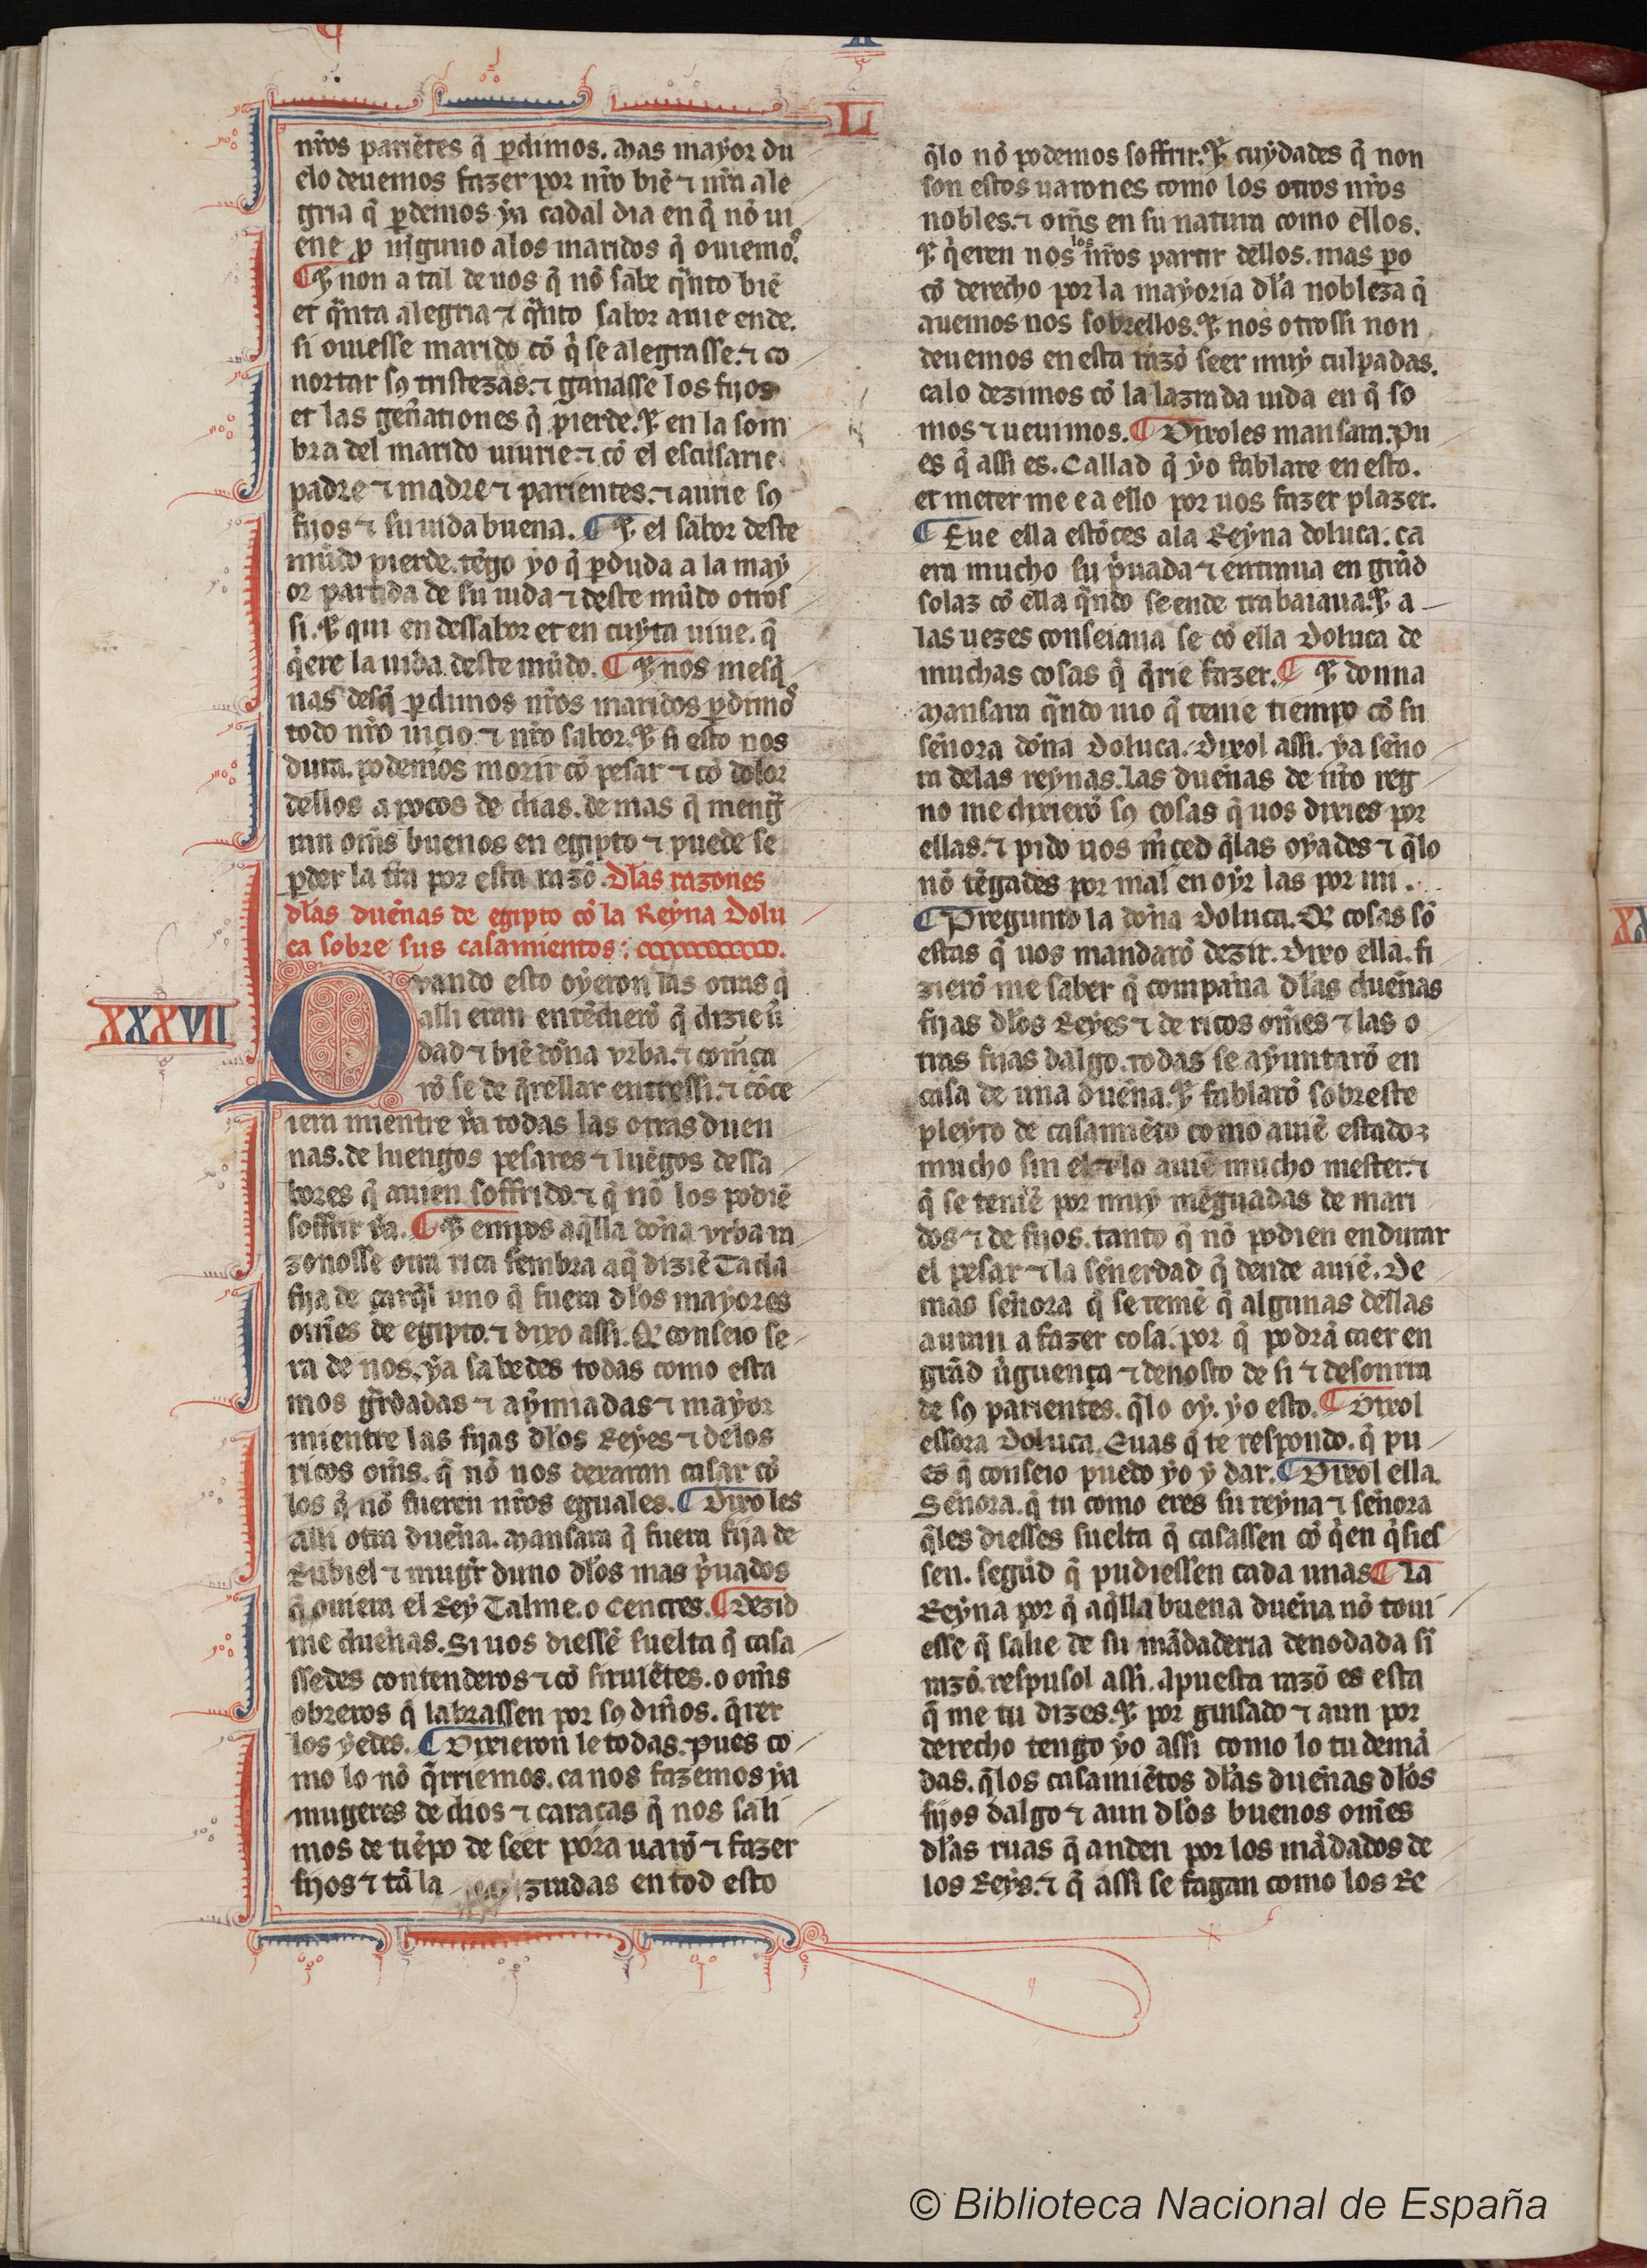 L
nr̃os pariẽtes q̃ ꝑdimos. Mas mayor du
elo deuemos fazer por nr̃o biẽ ⁊ nr̃a ale
gria q̃ ꝑdemos ya cadal dia en q̃ nõ ui
ene ꝓ nĩguno alos maridos q̃ ouiemos.
¶ E non a tal de nos q̃ nõ sabe q̃nto biẽ
et q̃nta alegria ⁊ q̃nto sabor aurie ende.
si ouiesse marido cõ q̃ se alegrasse. ⁊ co
nortar sꝯ tristezas. ⁊ ganasse los fijos
et las geñationes q̃ pierde. E en la som
bra del marido uiurie. ⁊ cõ el escusarie
padre ⁊ madre ⁊ parientes. ⁊ aurie sꝯ
fijos ⁊ su uida buena. ¶ E el sabor deste
mũdo pierde. tẽgo yo q̃ ꝑduda a la may
or partida de su uida ⁊ deste mũdo otros
si. E qui en dessabor et en cuyta uiue. q̃
q̃ere la uida deste mũdo. ¶ E nos mesq̃
nas desq̃ ꝑdimos nr̃os maridos ꝑdimos
todo nr̃o uicio. ⁊ nr̃o sabor. E si esto nos
dura. podemos morir cõ pesar ⁊ cõ dolor
dellos a pocos de dias. de mas q̃ meng̃
ran om̃s buenos en egipto ⁊ puede se
ꝑder la tr̃ra por esta razõ. Dlas razones
dlas dueñas de egipto cõ la Reyna Dolu
ca sobre sus casamientos:
XXXVII
Quando esto oyeron las otras q̃
alli eran entẽdierõ q̃ dizie ũ
dad ⁊ biẽ doña vrba. ⁊ com̃ça
rõ se de q̃rellar entressi. ⁊ cõce
iera mientre ya todas las otras duen
nas. de luengos pesares ⁊ luẽgos dessa
bores q̃ auien soffrido. ⁊ q̃ nõ los podiẽ
soffrir ya. ¶ E empos aq̃lla doña vrba ra
zonosse otra rica fembra aq̃ diziẽ Tacla
fija de çarq̃l uno q̃ fuera dlos mayores
om̃es de egipto. ⁊ dixo assi. Q̃ conseio se
ra de nos. ya sabedes todas como esta
mos gr̃dadas ⁊ aymadas ⁊ mayor
mientre las fijas dlos Reyes ⁊ delos
ricos om̃s. q̃ nõ nos dexaran casar cõ
los q̃ nõ fueren nr̃os eguales. ¶ Dixo les
alli otra dueña. Mansara q̃ fuera fija de
Rubiel ⁊ mug̃r duno dlos mas p̃uados
q̃ ouiera el Rey Talme. o Cencres. ¶ Dezid
me dueñas. Si uos diessẽ suelta q̃ casa
ssedes con tenderos ⁊ cõ siruiẽtes. o om̃s
obreros q̃ labrassen por sꝯ diños. q̃rer
los yedes. ¶ Dixieron le todas. pues co
mo lo nõ q̃rriemos. ca nos fazemos ya
mugeres de dios ⁊ caraças q̃ nos sali
mos de tiẽpo de seer pora uarõ ⁊ fazer
fijos ⁊ tã la zradas en tod esto
q̃lo nõ podemos soffrir. E cuydades q̃ non
son estos uarones como los otros nr̃os
nobles. ⁊ om̃s en su natura como ellos.
E q̃eren nos los nr̃os partir dellos. mas ꝑo
cõ derecho por la mayoria dla nobleza q̃
auemos nos sobrellos. E nos otrossi non
deuemos en esta razõ seer muy culpadas.
calo dezimos cõ la lazrada uida en q̃ so
mos ⁊ ueuimos. ¶ Dixoles mansara. Pu
es q̃ assi es. Callad q̃ yo fablare en esto.
et meter me e a ello por uos fazer plazer.
¶ Fue ella estõces ala Reyna doluca. ca
era mucho su p̃uada ⁊ entraua en grãd
solaz cõ ella q̃ndo se ende trabaiaua. E a
las uezes conseiaua se cõ ella Doluca de
muchas cosas q̃ q̃rie fazer. ¶ E donna
Mansara q̃ndo uio q̃ tenie tiempo cõ su
señora doña Doluca. Dixol assi. ya seño
ra delas reynas. las dueñas de nr̃o reg
no me dixierõ sꝯ cosas q̃ uos dixies por
ellas. ⁊ pido uos m̃ced q̃las oyades ⁊ q̃lo
nõ tẽgades por mal en oyr las por mi.
¶ Pregunto la doña Doluca. Q̃ cosas sõ
estas q̃ uos mandarõ dezir. Dixo ella. fi
zierõ me saber q̃ compaña dlas dueñas
fijas dlos Reyes ⁊ de ricos om̃es ⁊ las o
tras fijas dalgo. todas se ayuntarõ en
casa de una dueña. E fablarõ sobreste
pleyto de casamiẽto como auiẽ estado
mucho sin el ⁊ lo auiẽ mucho mester. ⁊
q̃ se teniẽ por muy mẽguadas de mari
dos ⁊ de fijos. tanto q̃ nõ podien endurar
el pesar ⁊ la señerdad q̃ dende auiẽ. De
mas señora q̃ se temẽ q̃ algunas dellas
auran a fazer cosa. por q̃ podrã caer en
grãd ũguença ⁊ denosto de si ⁊ desonrra
de sꝯ parientes. q̃lo oy. yo esto. ¶ Dixol
essora Doluca. Euas q̃ te respondo. q̃ pu
es q̃ conseio puedo yo y dar. ¶ Dixol ella.
Señora. q̃ tu como eres su reyna ⁊ señora
q̃les diesses suelta q̃ casassen cõ q̃en q̃sies
sen. segũd q̃ pudiessen cada unas. ¶ La
Reyna por q̃ aq̃lla buena dueña nõ toui
esse q̃ salie de su mãdaderia denodada si
razõ. respusol assi. Apuesta razõ es esta
q̃ me tu dizes. E por guisado ⁊ aun por
derecho tengo yo assi como lo tu demã
das. q̃los casamiẽtos dlas dueñas dlos
fijos dalgo ⁊ aun dlos buenos om̃es
dlas ruas q̃ anden por los mãdados de
los Reys. ⁊ q̃ assi se fagan como los Re
© Biblioteca Nacional de España